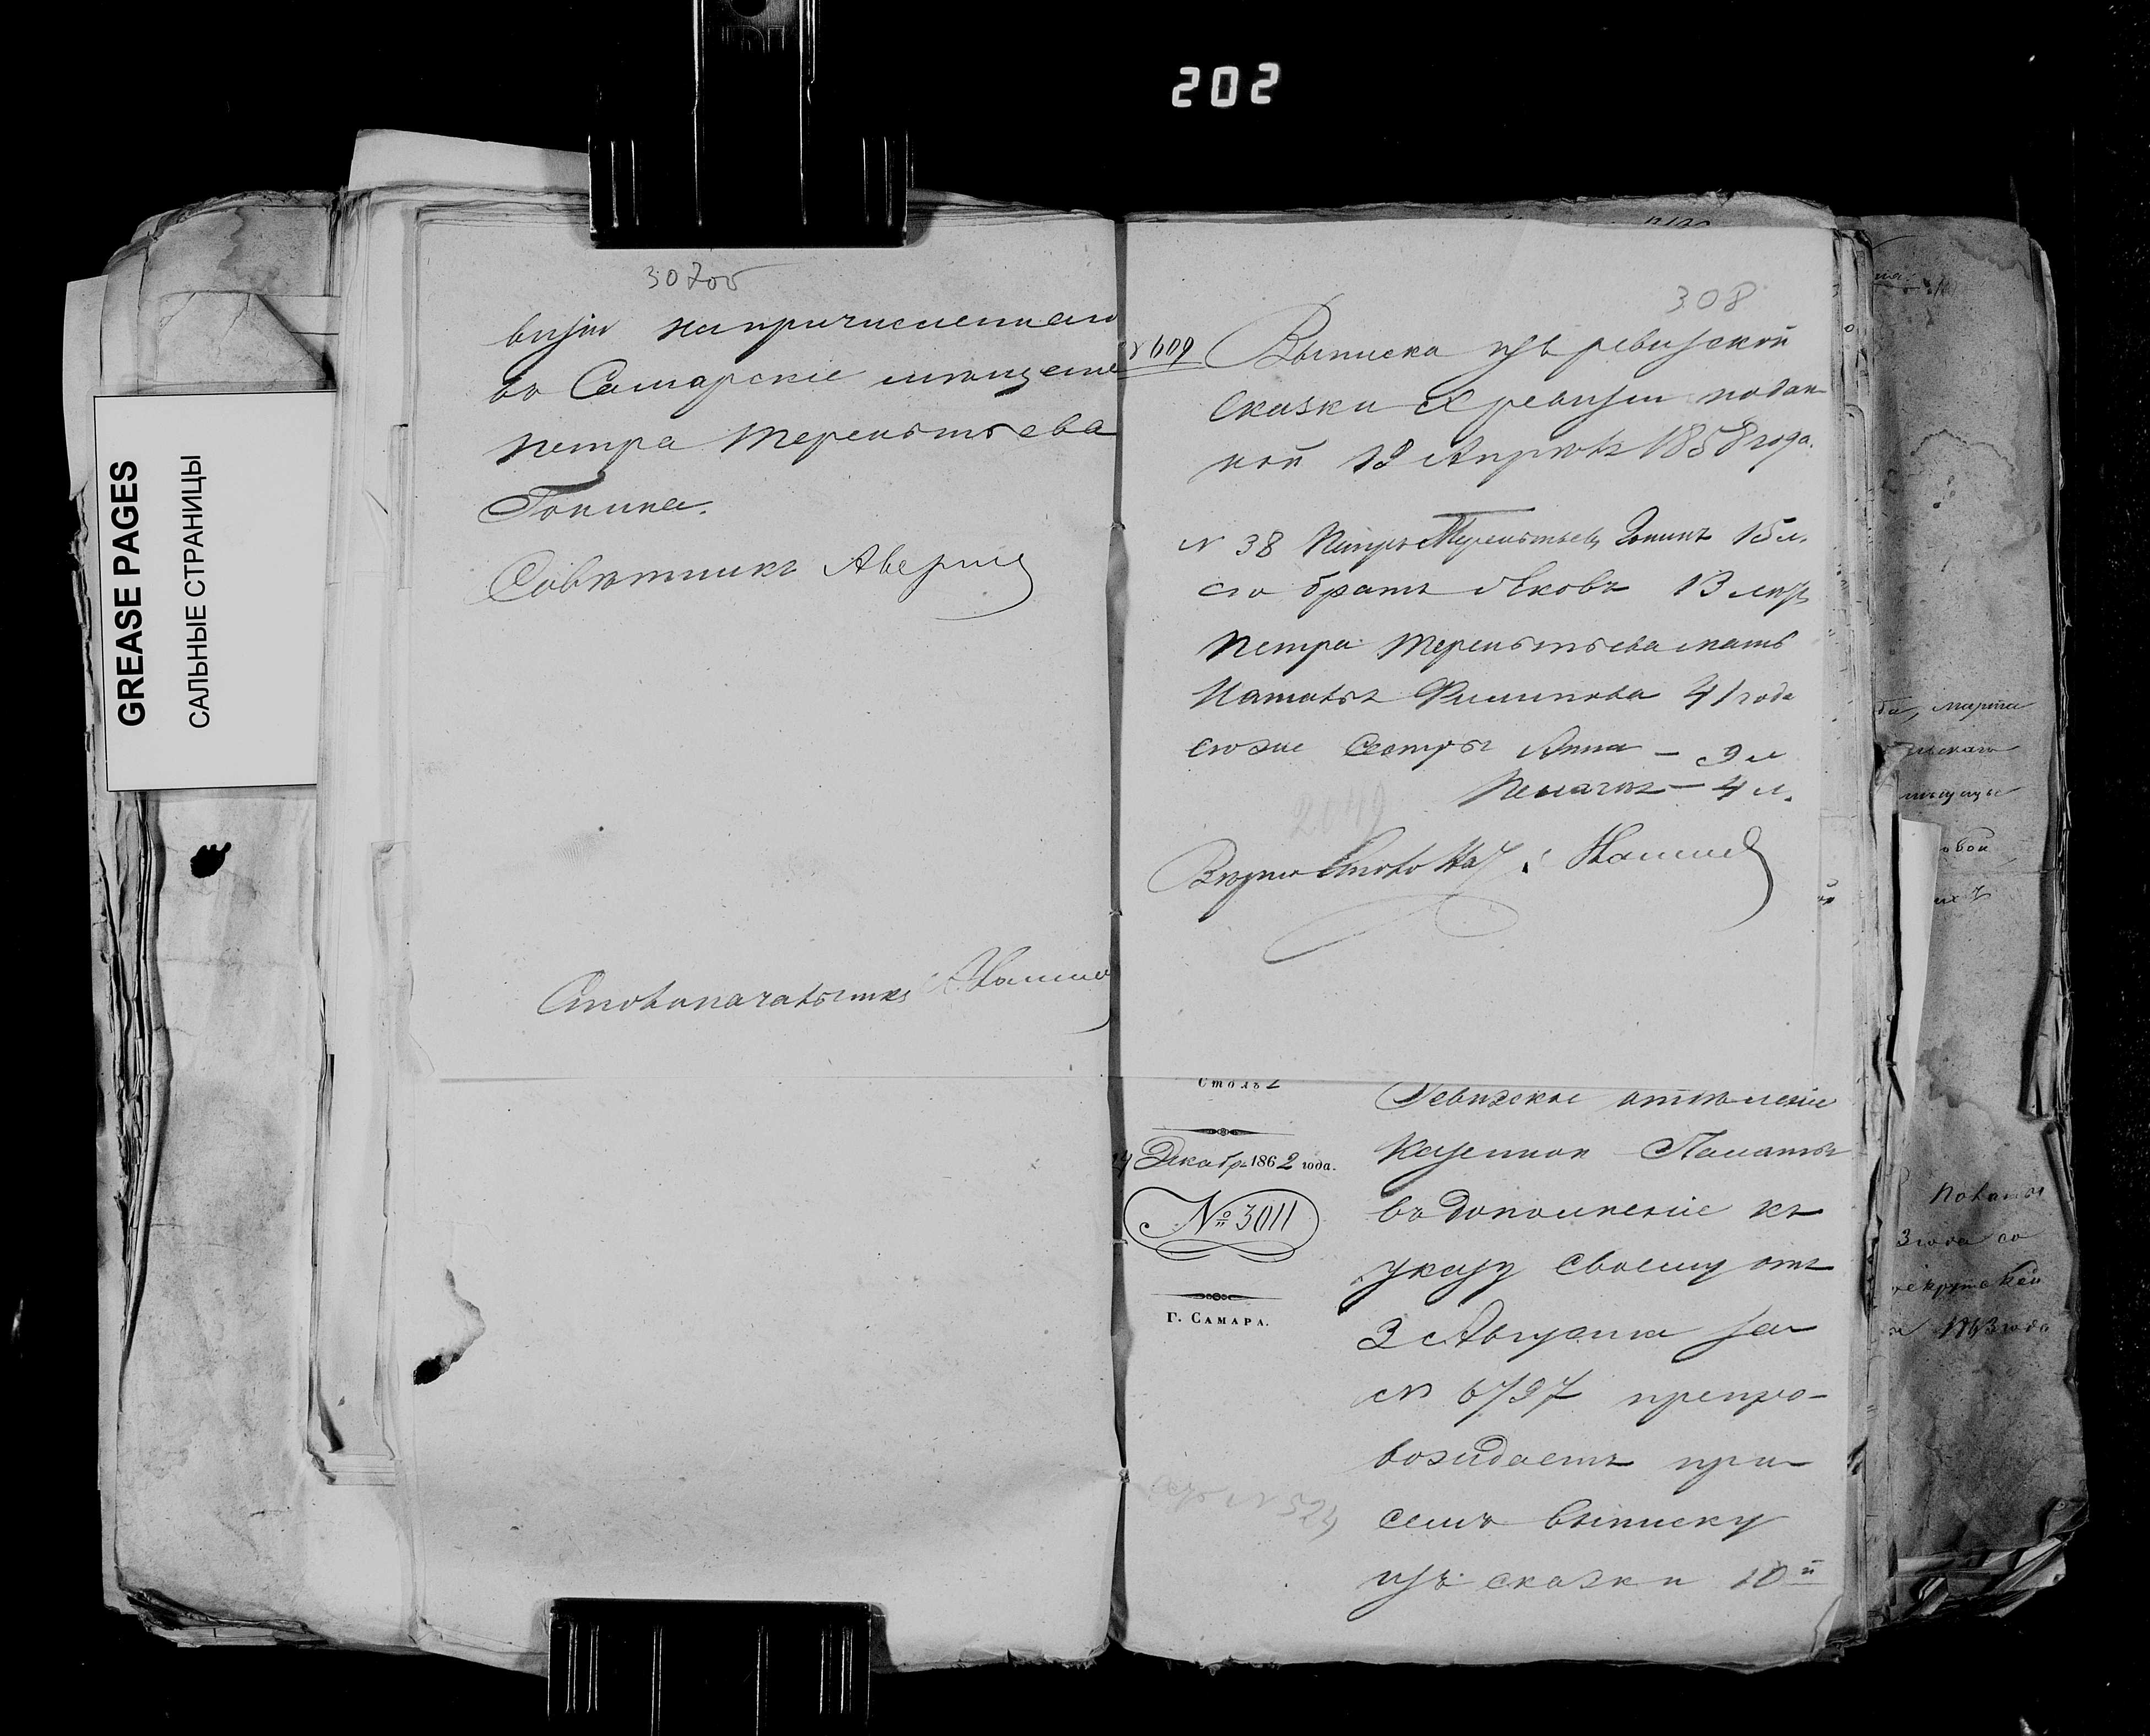 202
GREASE PAGES
САЛЬНЫЕ СТРАНИЦЫ
307об
визіи на причисленнаго
въ Самарскіе мѣщане
Петра Терентьева
Гонина.
Совѣтникъ
Столоначальникъ
308
Выписка изъ ревизской
сказки X ревизіи подан
ной 18 Апрѣля 1858 года.
№ 38 Петръ Терентьевъ Гонинъ 15 л.
его братъ Яковъ 13 лѣтъ
Петра Терентьева мать
Наталья Филипова 41 года
его же сестры Анна — 9 л
Пелагея — 4 л.
2049
Вѣрно Столонач:
Столъ 2
Декабр 1862 года.
№ 3011
Г. САМАРА.
№ 524
Ревизское отдѣленіе
Казенной Палаты
въ дополненіе къ
указу своему отъ
3 Августа за
№ 6797 препро-
вождаетъ при
семъ выписку
изъ сказки 10й
марта
мѣщане
1863 года